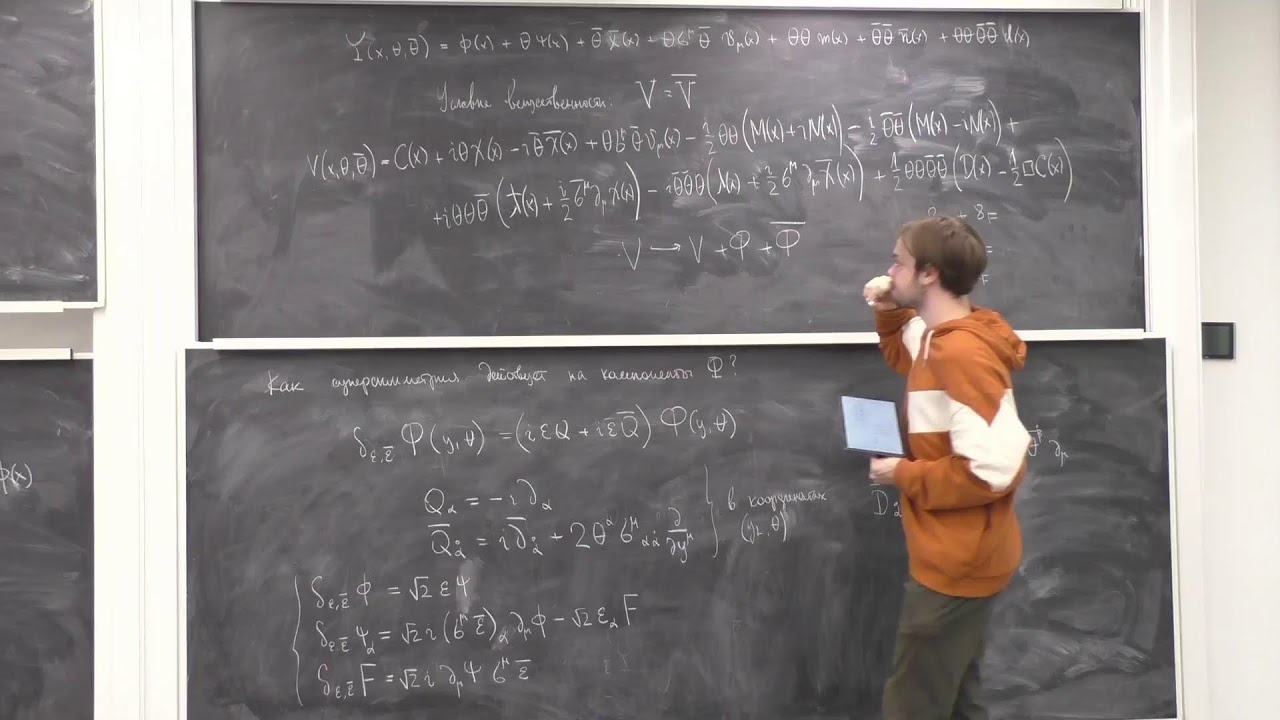 Y(x,θ,θ̄) = φ(x) + θψ(x) + θ̄χ̄(x) + θσ^μθ̄ v_μ(x) + θθ m(x) + θ̄θ̄ n̄(x) + θθθ̄θ̄ d(x)
Условие вещественности: V = V̄
V(x,θ,θ̄) = C(x) + iθχ(x) - iθ̄χ̄(x) + θσ^μθ̄v_μ(x) - 1/2 θθ(M(x)+iN(x)) - i/2 θ̄θ̄(M(x)-iN(x)) +
+iθθθ̄(λ̄(x) + i/2 σ̄^μ∂_μχ(x)) - iθ̄θ̄θ(λ(x) + i/2 σ^μ∂_μχ̄(x)) + 1/2 θθθ̄θ̄(D(x) - 1/2 □C(x))
+ 8 =
=
V → V + Φ + Φ̄
Как суперсимметрия действует на компоненты Φ?
δ_{ε,ε̄} Φ(y,θ) = (iεQ + iε̄Q̄) Φ(y,θ)
φ(x)
∂_μ
Q_α = -i∂_α
Q̄_α̇ = i∂̄_α̇ + 2θ^α σ^μ_{αα̇} ∂/∂y^μ
} в координатах
(y, θ)
D_α̇
δ_{ε,ε̄} φ = √2 εψ
δ_{ε,ε̄} ψ_α = √2 i(σ^μ ε̄)_α ∂_μφ - √2 ε_α F
δ_{ε,ε̄} F = √2 i ∂_μψ σ^μ ε̄